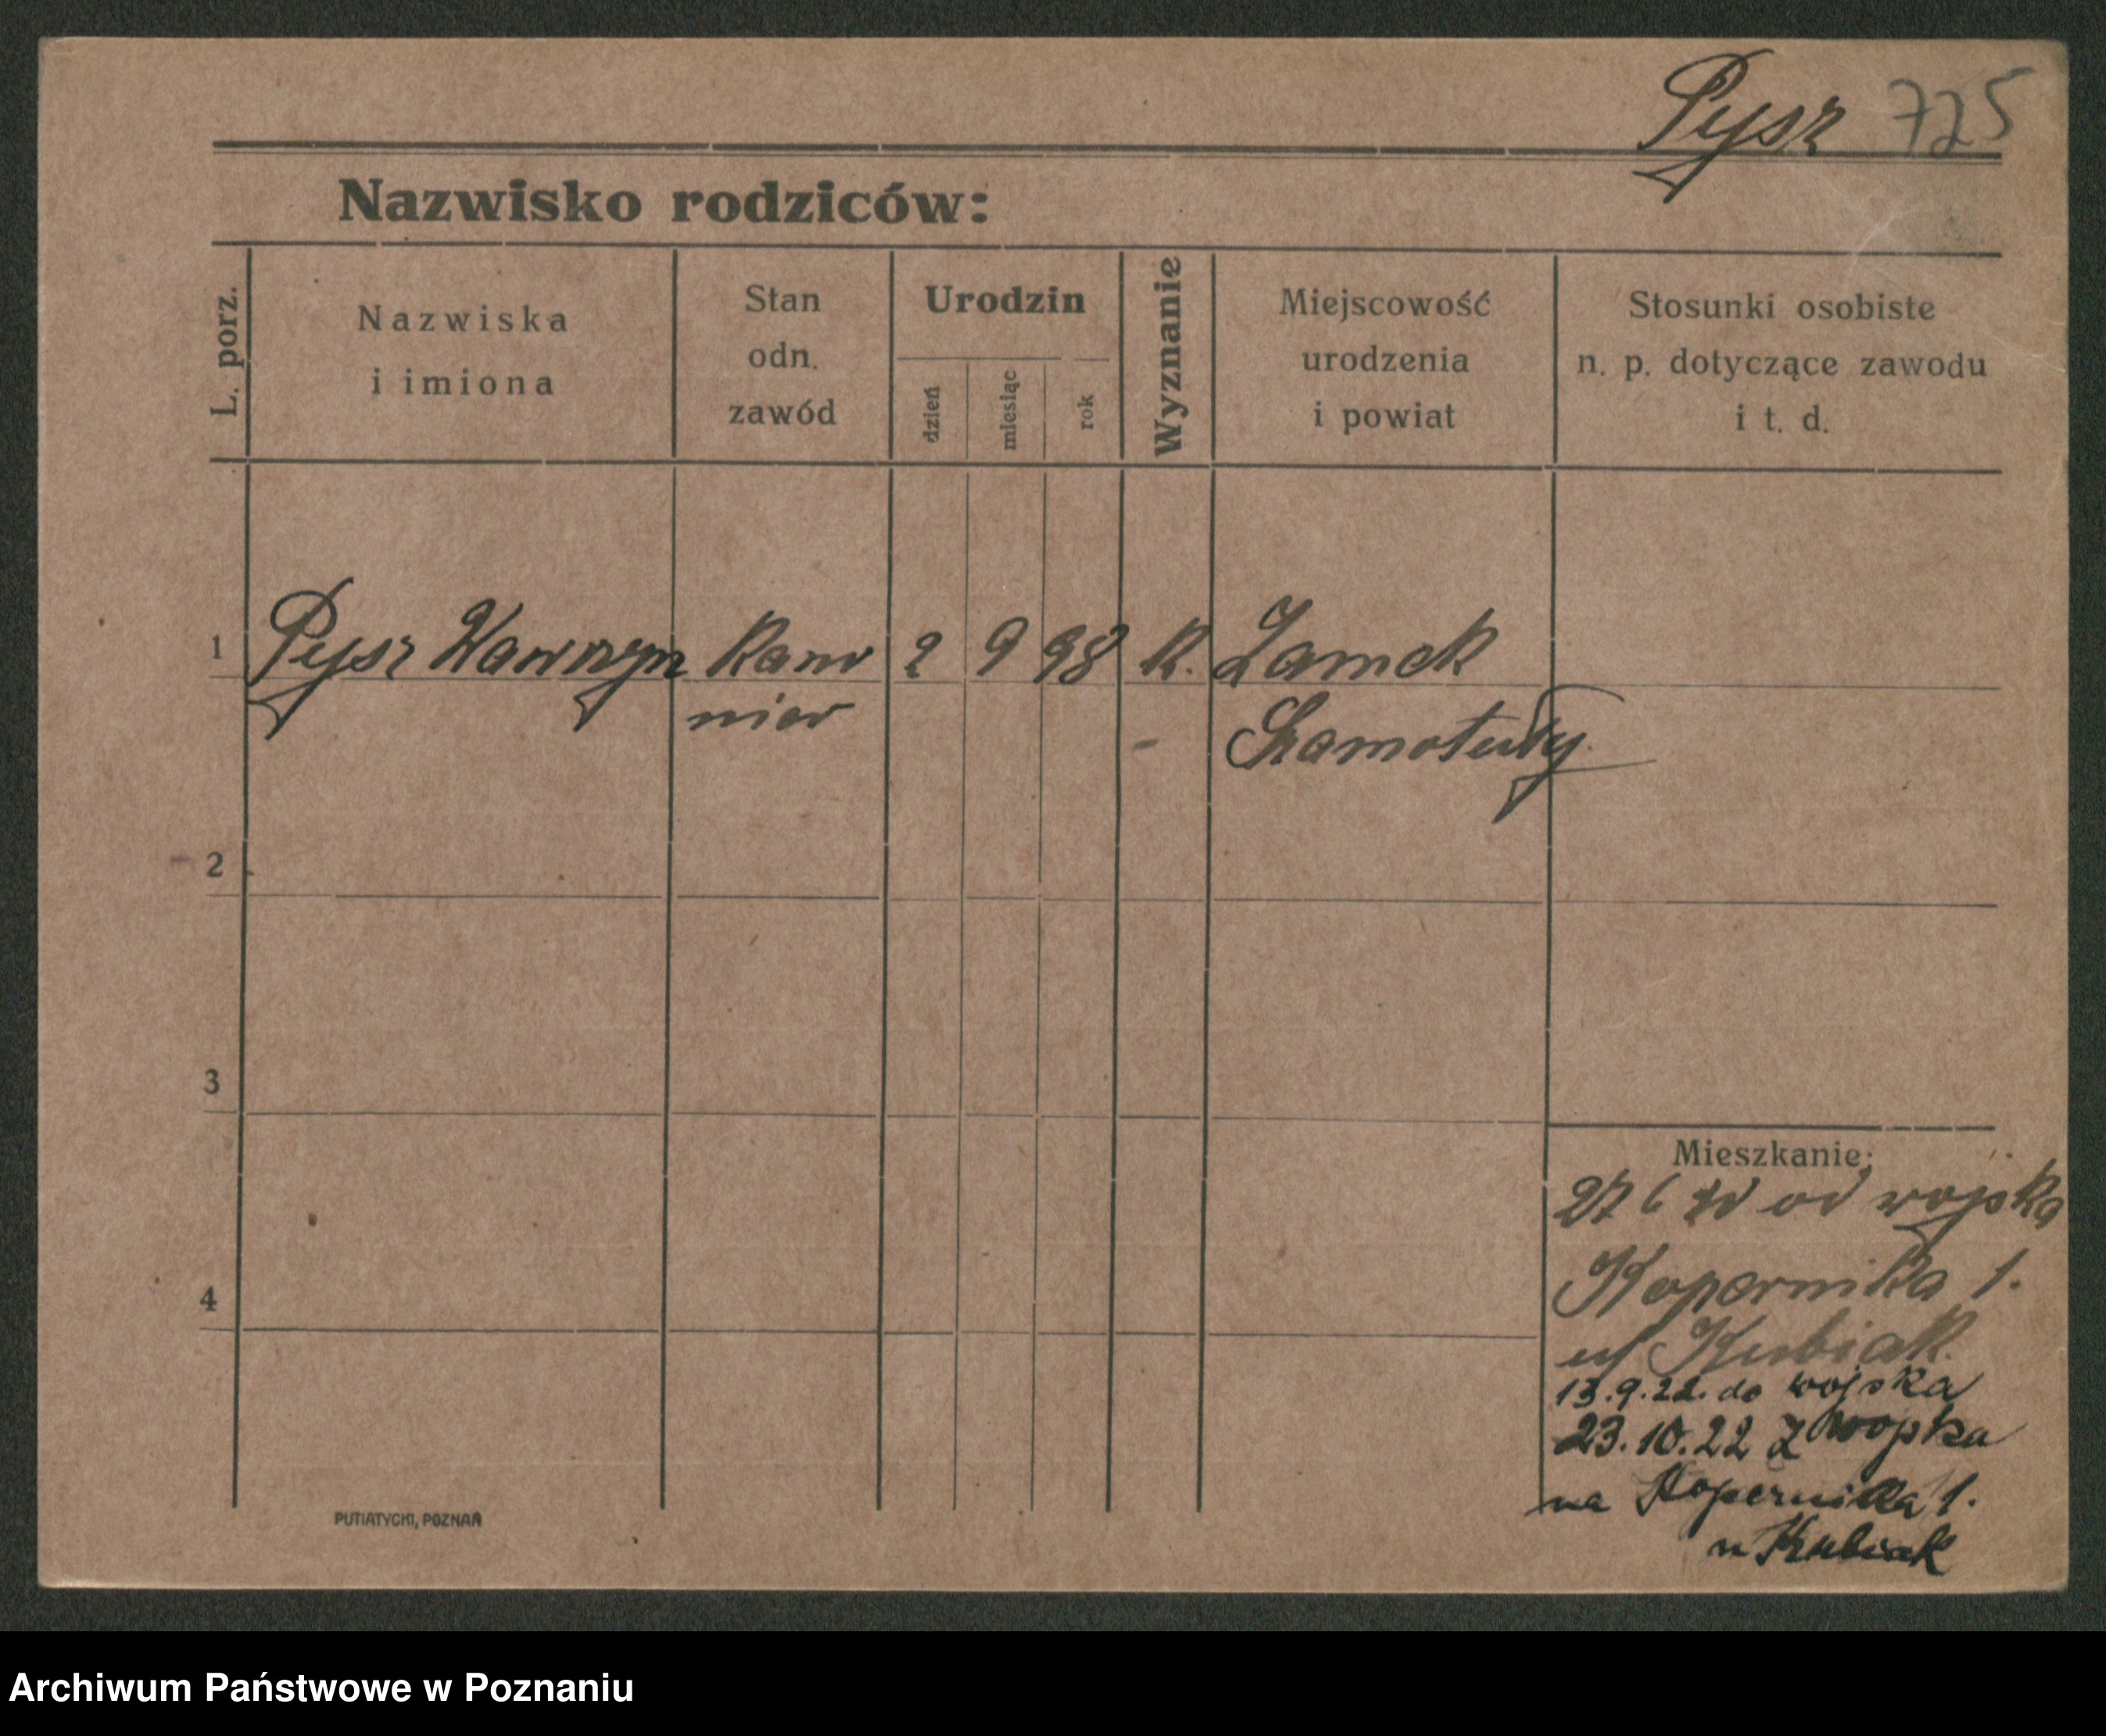 Pysz 725
Nazwisko rodziców:
L. porz.
Nazwiska
i imiona
Stan
odn.
zawód
Urodzin
dzień
miesiąc
rok
Wyznanie
Miejscowość
urodzenia
i powiat
Stosunki osobiste
n. p. dotyczące zawodu
i t. d.
1 Pysz Wawrzyn 2 9 98 K. Zamek
Szamotuły
2
3
4
Mieszkanie:
27 6 od wojska
Kopernika 1.
Kubiak.
13.9.22. do wojska
23.10.22 z wojska
na Kopernika 1.
u Kubiak
PUTIATYCKI, POZNAŃ
Archiwum Państwowe w Poznaniu